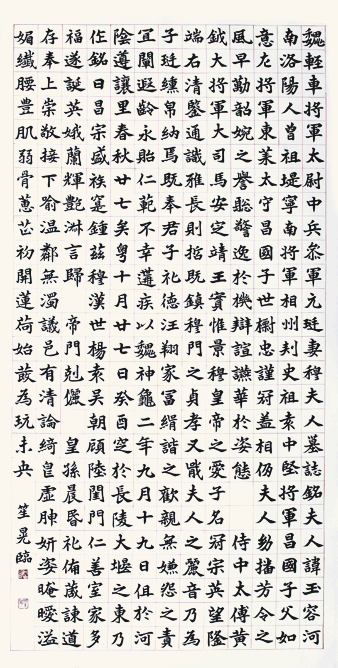 魏輕車將軍太尉中兵叅軍元珽妻穆夫人墓誌銘夫人諱玉容河
南洛陽人曾祖堤寧南將軍相州刾史祖袁中堅將軍昌國子父如
意左將軍東萊太守昌國子世樹忠謹冠盖相仍夫人幼播芳令之
風早勤韶婉之譽聡警逸於機辯諠讌華於姿態 侍中太傅黄
鉞大將軍大司馬安定靖王寶惟景穆皇帝之愛子名冠宗英望隆
端右清鑒通識雅長則哲既鎮穆門貞孝又戢夫人之麗音乃為
子珽纁帛納焉既奉君子礼德汪翔家富緝諧之歡親無嫌怨之責
宜闡遐齡永貽仁範不幸遘疾以魏神龜二年九月十九日俎於河
陰遵讓里春秋廿七矣粤十月廿七日癸酉窆於長陵大堰之東乃
作銘曰昌宗盛族寔鍾兹穆漢世楊袁吴朝顧陸閨門仁善室家多
福遂誕英娥蘭輝艷淋言歸 帝門剋儷 皇孫晨昏礼侑蔵諫道
存奉上崇敬接下喻温鄰無濁議邑有清論綺皇虚肿妍姿晻曖溢
媚纖腰豊肌弱骨蕙芷初開蓮荷始發為玩未央 笙晃臨